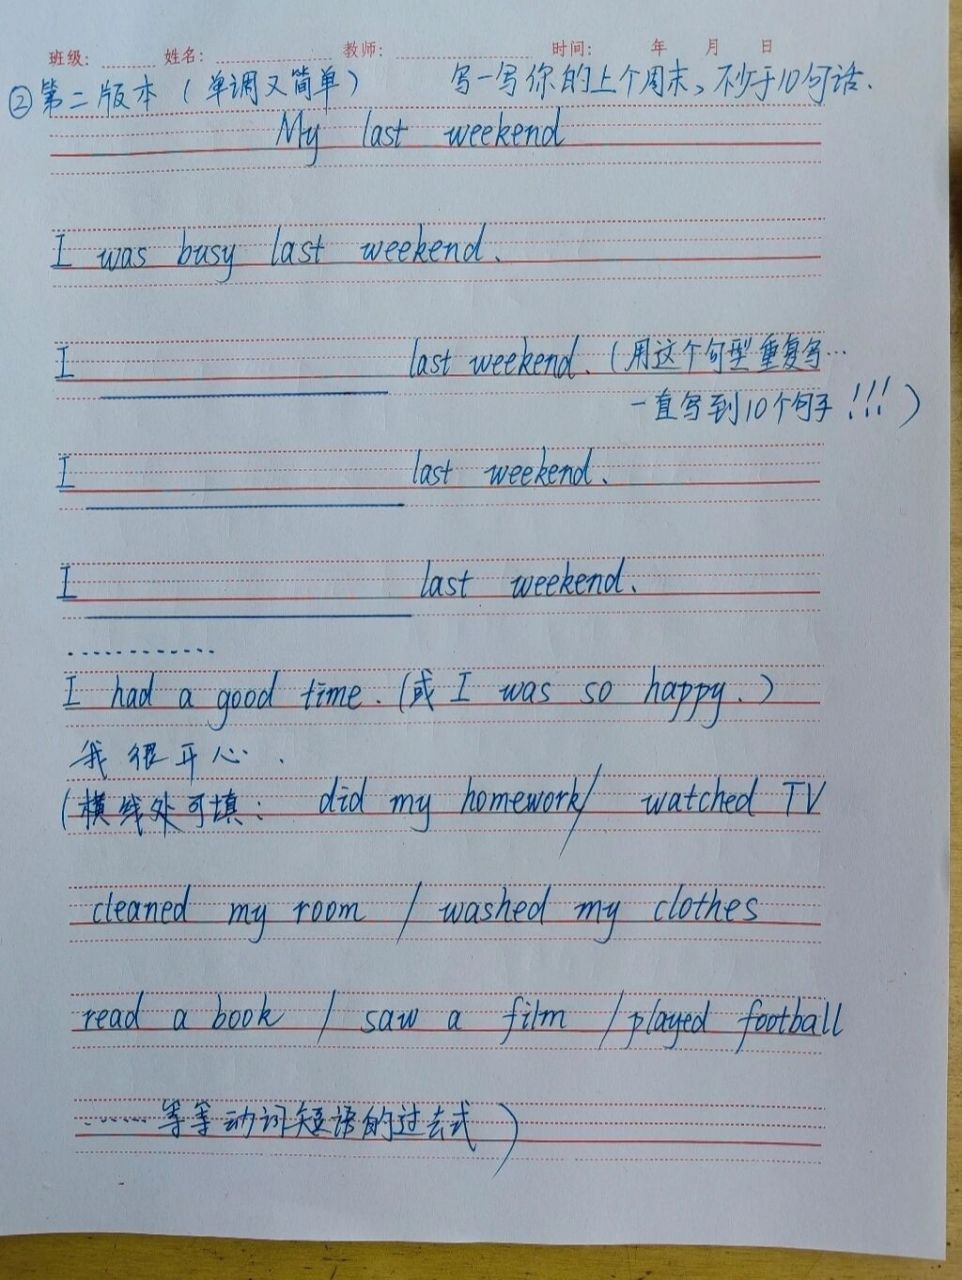 班级: 姓名: 教师: 时间: 年 月 日
②第二版本（单调又简单） 写一写你的上个周末,不少于10句话.
My last weekend
I was busy last weekend.
I last weekend.（用这个句型重复写…
一直写到10个句子!!!）
I last weekend.
I last weekend.
............
I had a good time.(或 I was so happy.)
我很开心.
(横线处可填: did my homework/ watched TV
cleaned my room / washed my clothes
read a book / saw a film / played football
......等等动词短语的过去式)